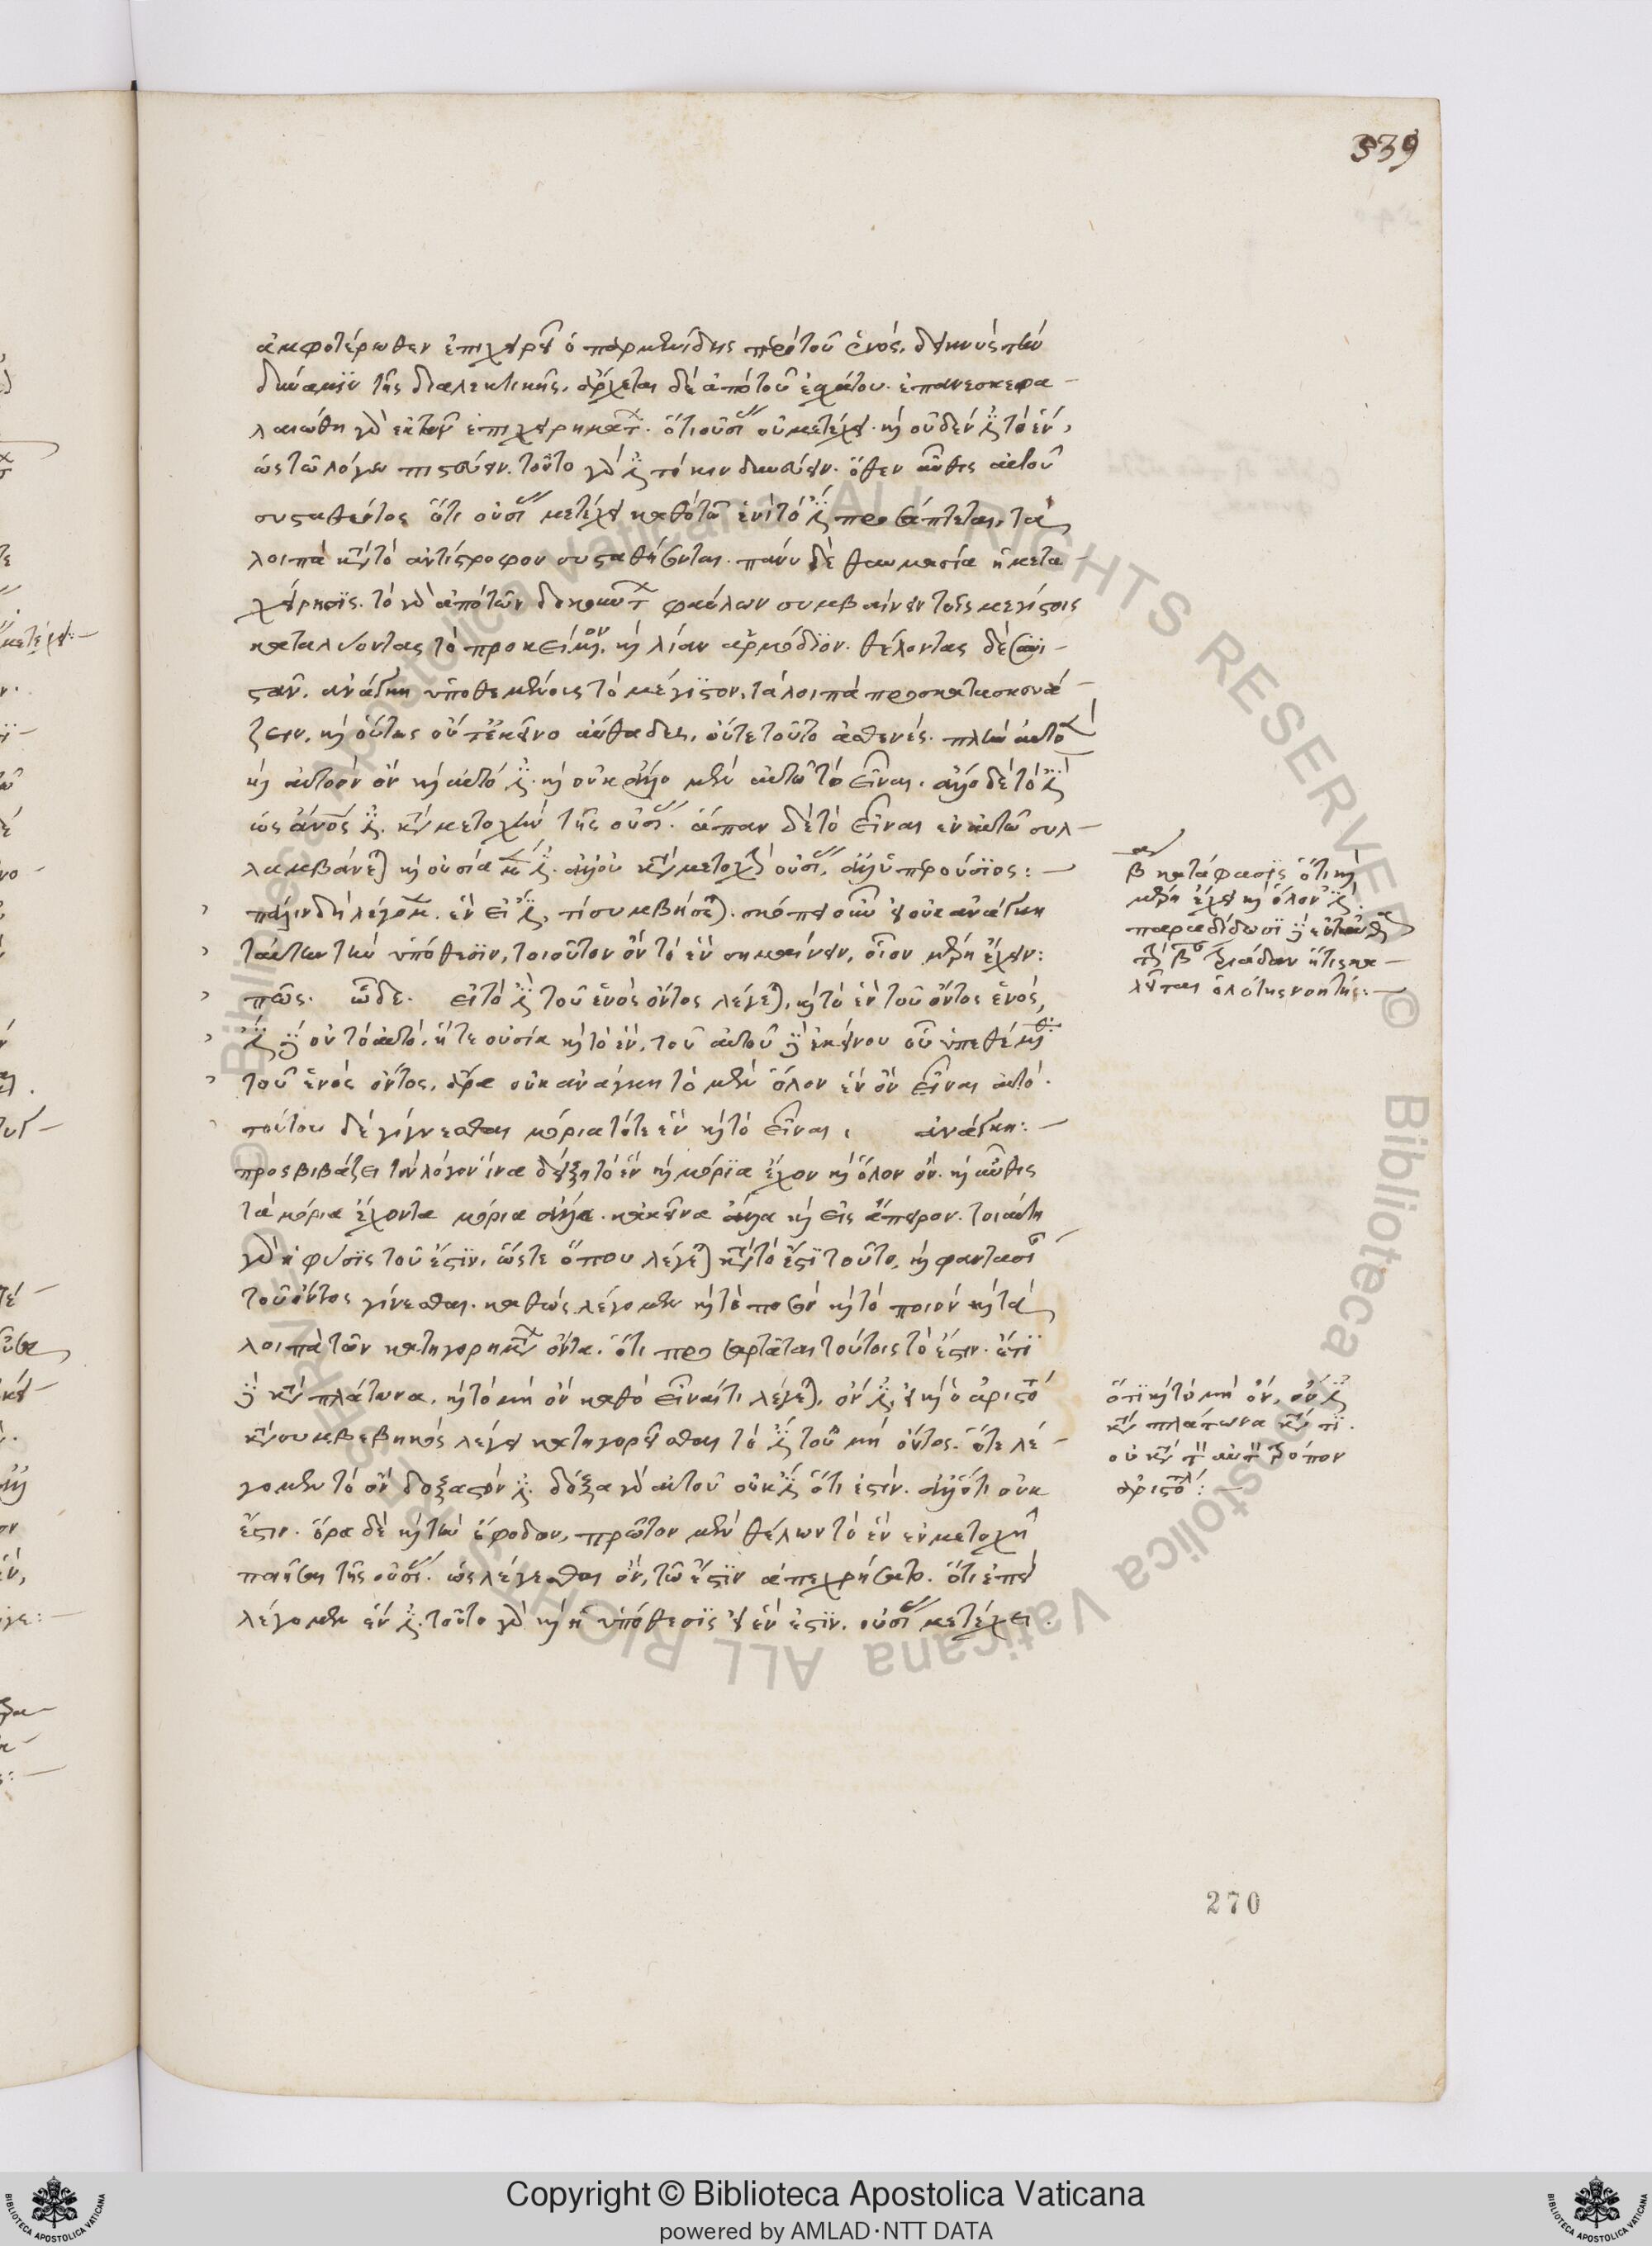 339
ἀμφοτέρωθεν ἐπιχειρεῖ ὁ παρμενίδης περὶ τοῦ ἑνός. δεικνὺς τὴν
δύναμιν τῆς διαλεκτικῆς. ἄρχεται δὲ ἀπὸ τοῦ ἐσχάτου. ἐπανεσκεφα-
λαιώθη γὰρ ἐκ τῶν ἐπιχειρημάτων. ὅτι οὐσίας οὐ μετέχει. καὶ οὐδέν ἐστι τὸ ἕν,
ὡς τῷ λόγῳ πιστεύειν. τοῦτο γάρ ἐστι τὸ κινδυνεύειν. ὅθεν αὖθις αὐτοῦ
συσταθέντος ὅτι οὐσίας μετέχει καθὸ τῷ ἑνὶ τὸ ἔστι προσάπτεται, τὰ
λοιπὰ κατὰ τὸ ἀντίστροφον συσταθήσονται. πάνυ δὲ θαυμασία ἡ μετα
χείρησις. τὸ γὰρ ἀπὸ τῶν δοκούντων φαύλων συμβαίνειν τοῖς μεγίστοις
καταλύοντας τὸ προκείμενον, καὶ λίαν ἁρμόδιον. θέλοντας δὲ συνι-
στᾶν. ἀνάγκη ὑποθεμένοις τὸ μέγιστον, τὰ λοιπὰ προσκατασκευά-
ζειν. καὶ οὕτως οὔτ' ἐκεῖνο αὔθαδες, οὔτε τοῦτο ἀσθενές. πλὴν αὐτὸ
καὶ αὐτοὸν ὂν καὶ αὐτό ἐστι. καὶ οὐκ ἄλλο μὲν αὐτῷ τὸ εἶναι. ἄλλο δὲ τὸ ἔστι
ὡς ἄνθρωπός ἐστι. κατὰ μετοχὴν τῆς οὐσίας. ἅπαν δὲ τὸ εἶναι ἐν αὐτῷ συλ-
λαμβάνεται καὶ οὐσία μέν ἐστι. ἀλλ' οὐ κατὰ μετοχὴν οὐσίας, ἀλλ' ὑπερούσιος:—
πάλιν δὴ λέγωμεν. ἓν εἰ ἔστι, τί συμβήσεται. σκόπει οὖν εἰ οὐκ ἀνάγκη
ταύτην τὴν ὑπόθεσιν, τοιοῦτον ὂν τὸ ἓν σημαίνειν, οἷον μέρη ἔχειν:
πῶς. ὧδε. εἰ τὸ ἔστι τοῦ ἑνὸς ὄντος λέγεται, καὶ τὸ ἓν τοῦ ὄντος ἑνός,
ἔστι δὲ οὐ τὸ αὐτό, ἥ τε οὐσία καὶ τὸ ἕν, τοῦ αὐτοῦ δὲ ἐκείνου οὗ ὑπεθέμεθα
τοῦ ἑνὸς ὄντος, ἆρα οὐκ ἀνάγκη τὸ μὲν ὅλον ἓν ὂν εἶναι αὐτό.
τούτου δὲ γίγνεσθαι μόρια τό τε ἓν καὶ τὸ εἶναι, ἀνάγκη:—
προσβιβάζει τὸν λόγον ἵνα δείξῃ τὸ ἓν καὶ μόρια ἔχον καὶ ὅλον ὄν. καὶ αὖθις
τὰ μόρια ἔχοντα μόρια ἄλλα. κἀκεῖνα ἄλλα καὶ εἰς ἄπειρον. τοιαύτη
γὰρ ἡ φύσις τοῦ ἔστιν. ὥστε ὅπου λέγεται κατὰ τὸ ἔστι τοῦτο, καὶ φαντασίαν
τοῦ ὄντος γίνεσθαι. καθὼς λέγομεν καὶ τὸ ποσὸν καὶ τὸ ποιὸν καὶ τὰ
λοιπὰ τῶν κατηγορημάτων ὄντα. ὅτι προσαρτᾶται τούτοις τὸ ἔστιν. ἔτι
δὲ κατὰ πλάτωνα, καὶ τὸ μὴ ὂν καθὸ εἶναί τι λέγεται, ὄν ἐστι, εἰ καὶ ὁ ἀριστοτέλης
κατὰ συμβεβηκὸς λέγει κατηγορεῖσθαι τὸ ἔστι τοῦ μὴ ὄντος. ὅτε λέ-
γομεν τὸ ὂν δοξαστόν ἐστι. δόξα γὰρ αὐτοῦ οὐκ ἔστι ὅτι ἐστίν. ἀλλ' ὅτι οὐκ
ἔστιν. ὅρα δὲ καὶ τὴν ἔφοδον, πρῶτον μὲν θέλων τὸ ἓν ἐν μετοχῇ
ποιῆσαι τῆς οὐσίας. ὡς λέγεσθαι ὄν, τῷ ἔστιν ἀπεχρήσατο. ὅτι ἐπεὶ
λέγομεν ἕν ἐστι. τοῦτο γὰρ καὶ ἡ ὑπόθεσις εἰ ἕν ἐστιν. οὐσίας μετέχει
β κατάφασις ὅτι καὶ
μέρη ἔχει καὶ ὅλον ἐστί.
παραδίδωσι δὲ ἐνταῦθα
τὴν βαν τριάδαν ἥτις κα-
λεῖται ὁλότης νοητής:—
ὅτι καὶ τὸ μὴ ὄν, ὄν ἐστι
κατὰ πλάτωνα κατὰ τί.
οὐ κατὰ τὸν αὐτὸν τρόπον
ἀριστοτέλης:—
270
Copyright © Biblioteca Apostolica Vaticana
powered by AMLAD·NTT DATA